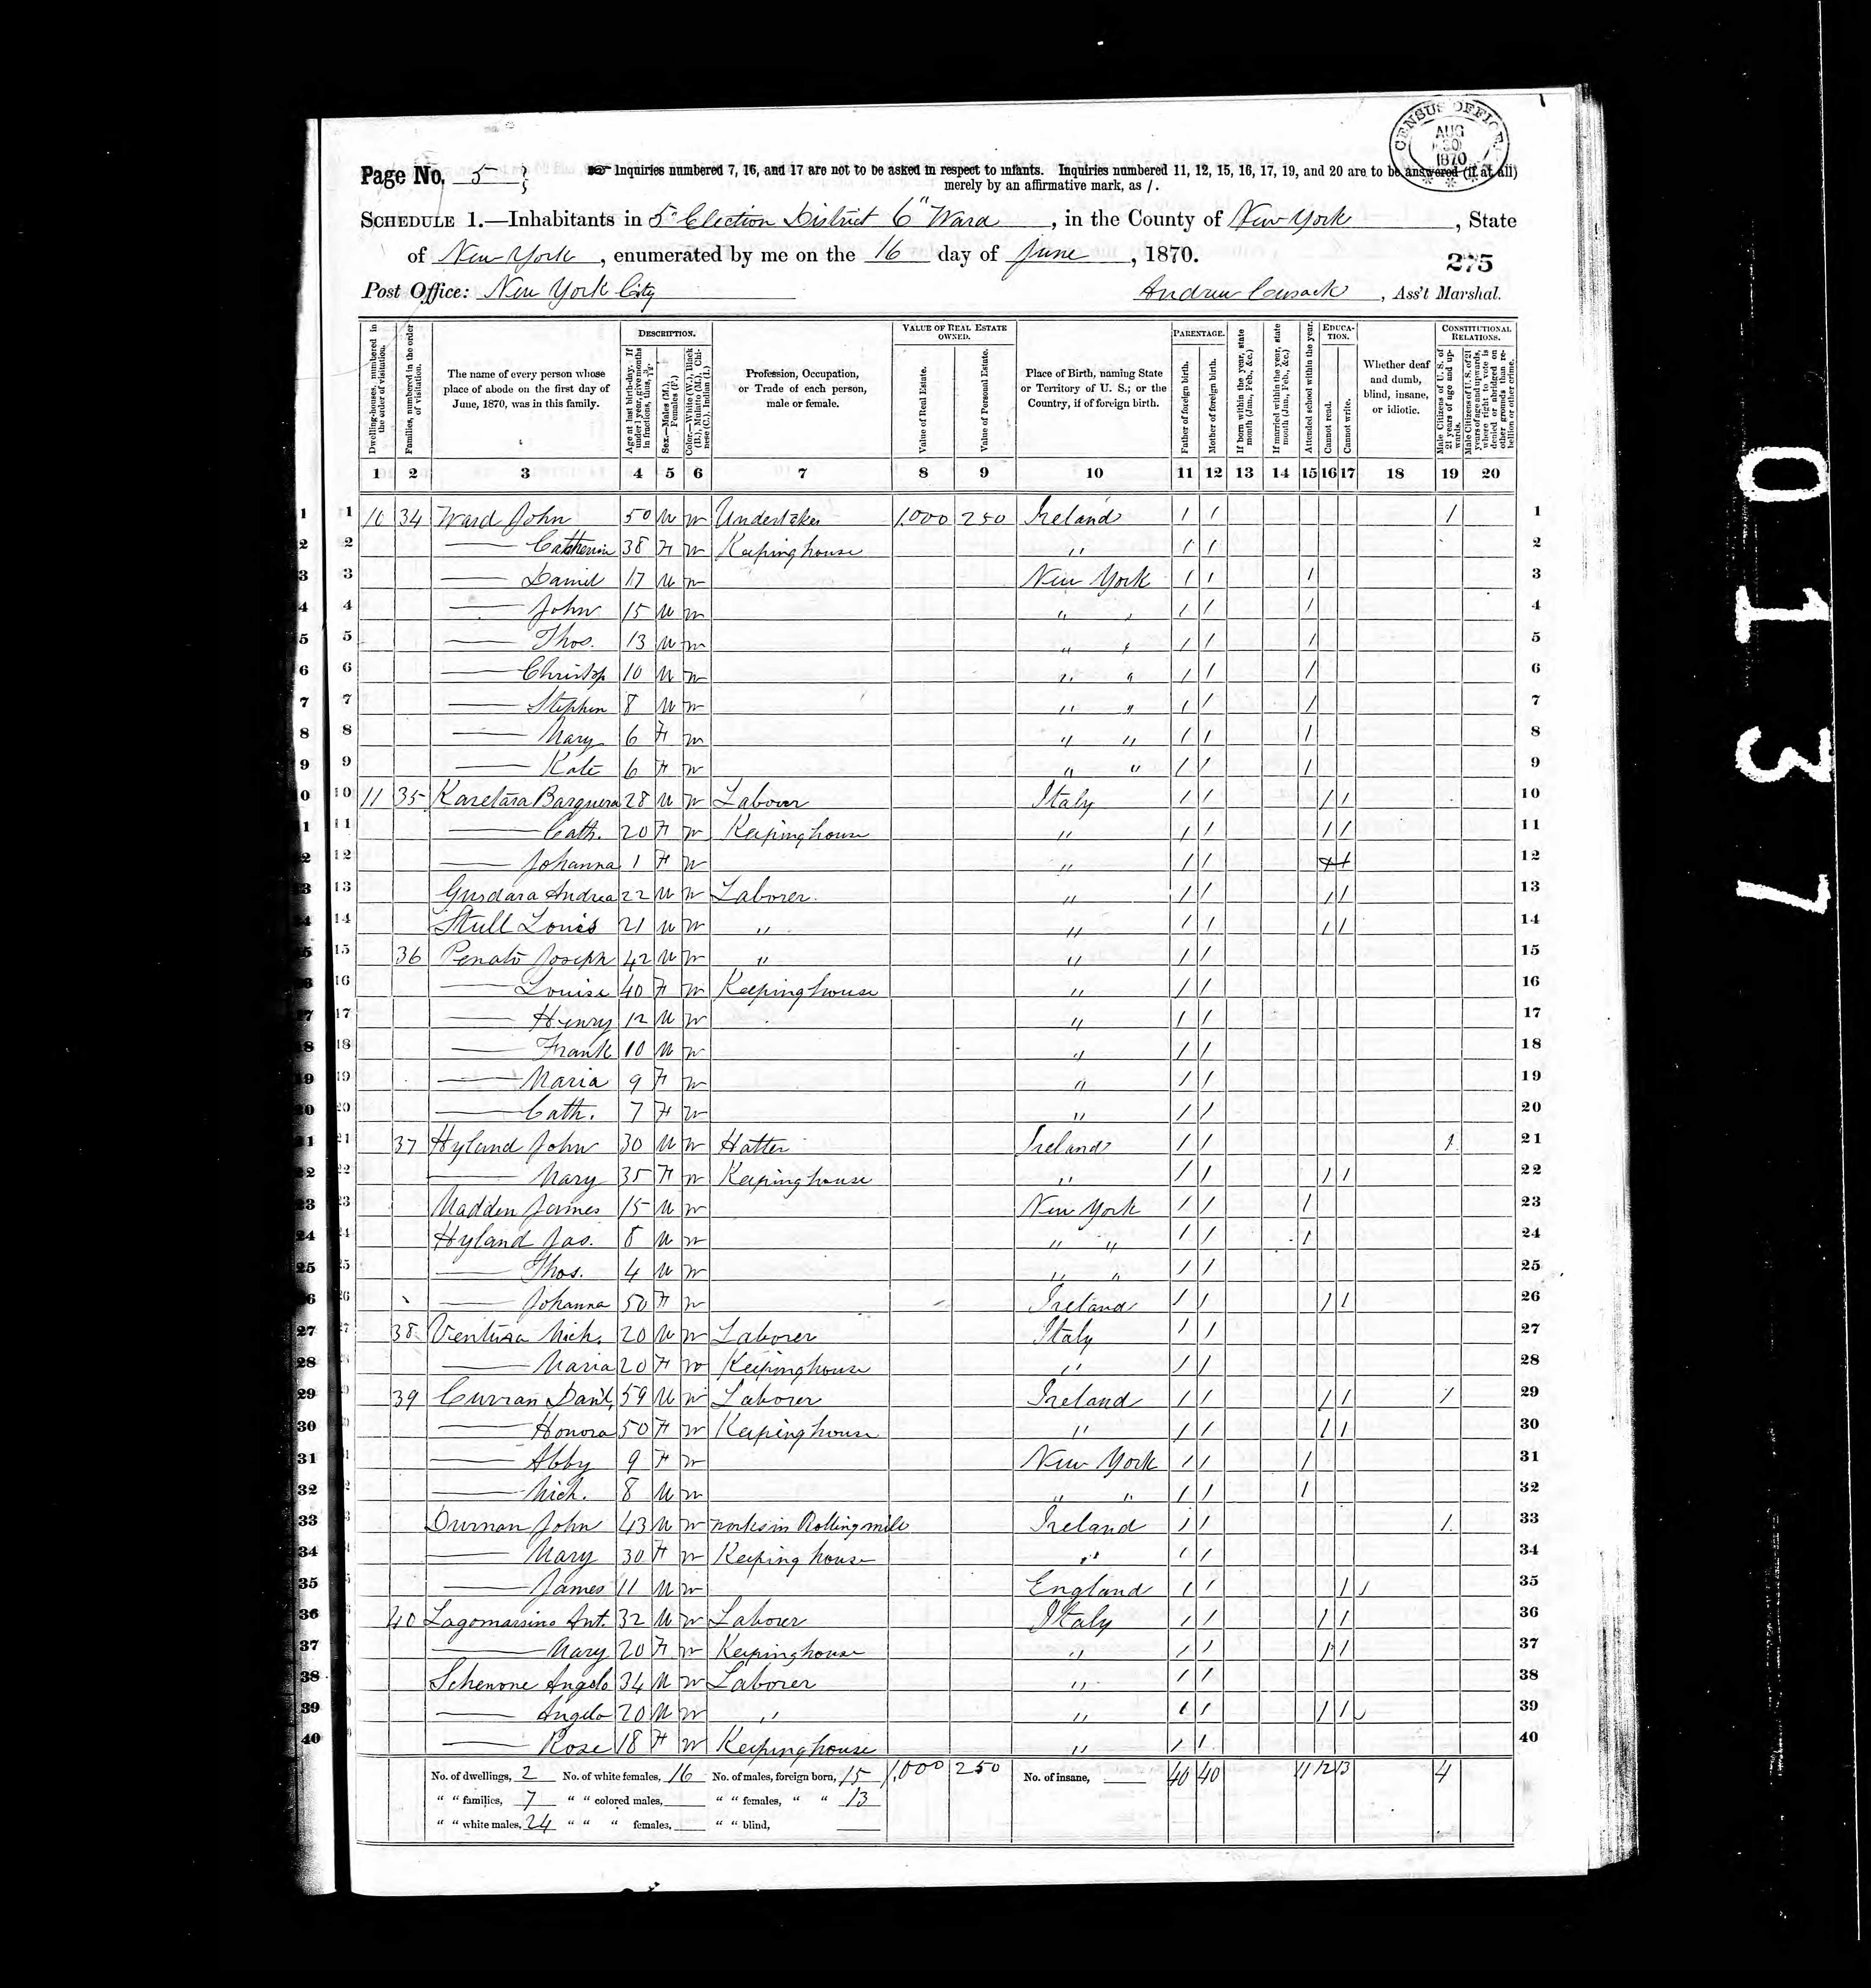 CENSUS OFFICE
AUG
30
1870
Page No. 5
Inquiries numbered 7, 16, and 17 are not to be asked in respect to infants. Inquiries numbered 11, 12, 15, 16, 17, 19, and 20 are to be answered (if at all)
merely by an affirmative mark, as /.
SCHEDULE 1.—Inhabitants in 5" Election District 6" Ward, in the County of New York, State
of New York, enumerated by me on the 16 day of June, 1870.
275
Post Office: New York City Andrew Cusack, Ass't Marshal.
Dwelling-houses, numbered in the order of visitation.
Families, numbered in the order of visitation.
The name of every person whose place of abode on the first day of June, 1870, was in this family.
DESCRIPTION.
Age at last birth-day. If under 1 year, give months in fractions, thus, 3/12.
Sex.—Males (M.), Females (F.)
Color.—White (W.), Black (B.), Mulatto (M.), Chinese (C.), Indian (I.)
Profession, Occupation, or Trade of each person, male or female.
VALUE OF REAL ESTATE OWNED.
Value of Real Estate.
Value of Personal Estate.
Place of Birth, naming State or Territory of U. S.; or the Country, if of foreign birth.
PARENTAGE.
Father of foreign birth.
Mother of foreign birth.
If born within the year, state month (Jan., Feb., &c.)
If married within the year, state month (Jan., Feb., &c.)
Attended school within the year.
EDUCATION.
Cannot read.
Cannot write.
Whether deaf and dumb, blind, insane, or idiotic.
CONSTITUTIONAL RELATIONS.
Male Citizens of U. S. of 21 years of age and upwards.
Male Citizens of U. S. of 21 years of age and upwards, where right to vote is denied or abridged on other grounds than rebellion or other crime.
1 2 3 4 5 6 7 8 9 10 11 12 13 14 15 16 17 18 19 20
1 10 34 Ward John 50 M W Undertaker 1,000 250 Ireland / / / 1
2 — Catherin 38 F W Keeping house " / / 2
3 — Daniel 17 M W New York / / / 3
4 — John 15 M W " " / / / 4
5 — Thos. 13 M W " " / / / 5
6 — Christop 10 M W " " / / / 6
7 — Stephen 8 M W " " / / / 7
8 — Mary 6 F W " " / / / 8
9 — Kate 6 F W " " / / / 9
10 11 35 Karetara Barguera 28 M W Labourer Italy / / / / 10
11 — Cath. 20 F W Keeping house " / / / / 11
12 — Johanna 1 F W " / / 12
13 Gusdara Andrea 22 M W Laborer. " / / / / 13
14 Stull Louis 21 M W " " / / / / 14
15 36 Penato Joseph 42 M W " " / / 15
16 — Louise 40 F W Keeping house " / / 16
17 — Henry 12 M W " / / 17
18 — Frank 10 M W " / / 18
19 — Maria 9 F W " / / 19
20 — Cath. 7 F W " / / 20
21 37 Hyland John 30 M W Hatter Ireland / / / 21
22 — Mary 35 F W Keeping house " / / / / 22
23 Madden James 15 M W New York / / / 23
24 Hyland Jas. 8 M W " " / / / 24
25 — Thos. 4 M W " " / / 25
26 — Johanna 50 F W Ireland / / / / 26
27 38 Ventura Mich. 20 M W Laborer Italy / / 27
28 — Maria 20 F W Keeping house " / / 28
29 39 Curran Danl. 59 M W Laborer Ireland / / / / / 29
30 — Honora 50 F W Keeping house " / / / / 30
31 — Abby 9 F W New York / / / 31
32 — Mich. 8 M W " " / / / 32
33 Durnan John 43 M W works in Rolling mill Ireland / / / 33
34 — Mary 30 F W Keeping house " / / 34
35 — James 11 M W England / / / / 35
36 40 Lagomarsino Ant. 32 M W Laborer Italy / / / / 36
37 — Mary 20 F W Keeping house " / / / / 37
38 Schenone Angelo 34 M W Laborer " / / 38
39 — Angelo 20 M W " " / / / / 39
40 — Rose 18 F W Keeping house " / / 40
No. of dwellings, 2 No. of white females, 16 No. of males, foreign born, 15 1,000 250 No. of insane, 40 40 11 12 13 4
" " families, 7 " " colored males, " " females, " " 13
" " white males, 24 " " " females, " " blind,
0137